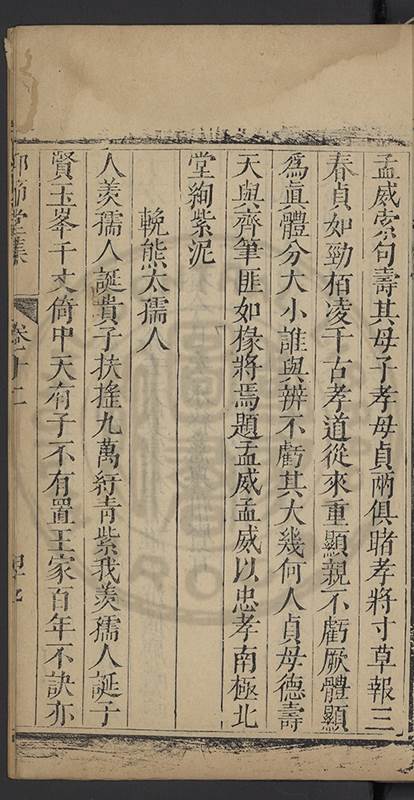 孟威索句壽其母子孝母貞兩俱賭孝將寸草報三
春貞如勁栢凌千古孝道從來重顯親不虧厥體顯
爲眞體分大小誰與辨不虧其大幾何人貞母德壽
天與齊筆匪如椽將焉題孟威孟威以忠孝南極北
堂絢紫泥
輓熊太孺人
人羨孺人誕貴子扶搖九萬紆青紫我羨孺人誕子
賢玉峯千丈倚中天有子不有置王家百年不訣亦
堂集
卷十二